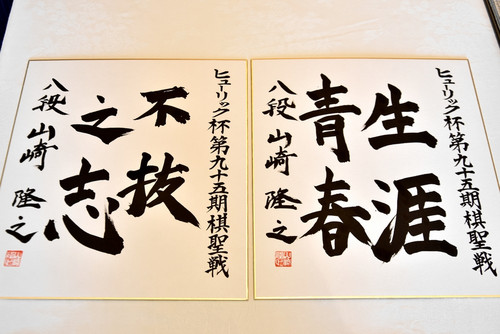 ヒューリック杯第九十五期棋聖戦
生涯
青春
八段 山崎 隆之
ヒューリック杯第九十五期棋聖戦
不抜
之志
八段 山崎 隆之